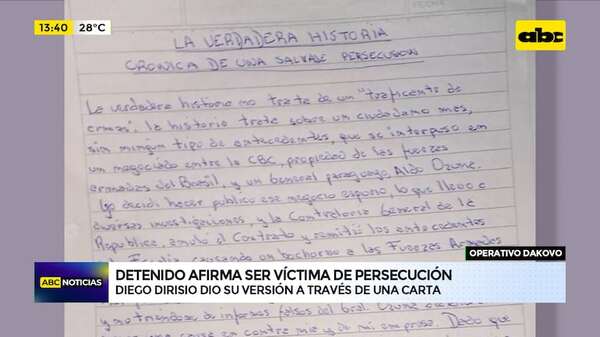 13:40 28°C
abc
LA VERDADERA HISTORIA
CRONICA DE UNA SALVAJE PERSECUSION
La verdadera historia no trata de un "traficante de
armas". la historia trata sobre un ciudadano más,
sin ningun tipo de antecedentes, que se interpuso en
un negociado entre la CBC, propiedad de las fuerzas
armadas del Brasil, y un General paraguayo, Aldo Ozuna.
Yo decidi hacer publico ese negocio espurio, lo que llevo a
diversas investigaciones, y la Contraloria General de la
Republica, anulo el Contrato y remitio los antecedentes
Fiscalia, causando un bochorno a las Fuerzas Armadas
OPERATIVO DAKOVO
ABC NOTICIAS
DETENIDO AFIRMA SER VÍCTIMA DE PERSECUCIÓN
DIEGO DIRISIO DIO SU VERSIÓN A TRAVÉS DE UNA CARTA
informes falsos del Gral. Ozuna
causa en contra mia y de mi empresa. Dado que